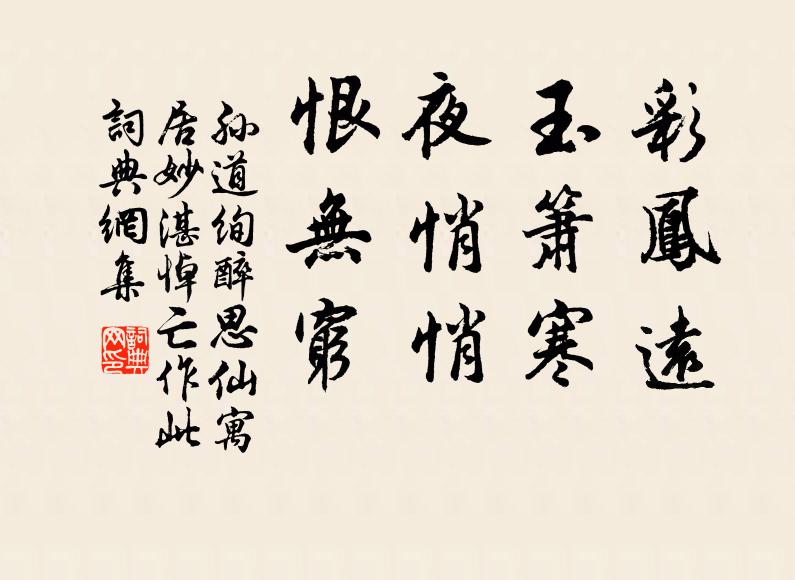 彩鳳遠
玉簫寒
夜悄悄
恨無窮
孫道絢醉思仙寓
居妙湛悼亡作此
詞典網集
詞典網印